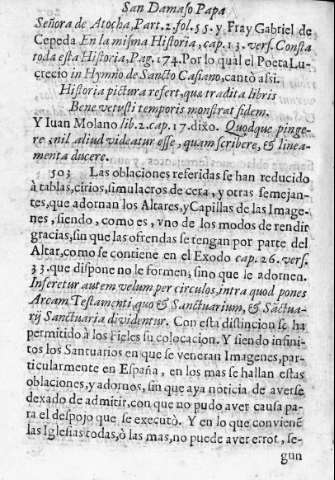 San Damaso Papa
Señora de Atocha, Part. 2. fol. 55. y Fray Gabriel de
Cepeda En la misma Historia, cap. 13. vers. Consta
toda esta Historia, Pag. 174. Por lo qual el Poeta Lu-
crecio in Hymno de Sancto Casiano, cantò assi.
Historia pictura refert, quæ tradita libris
Bene vetusti temporis monstrat fidem.
Y Iuan Molano lib. 2. cap. 17. dixo. Quodque pinge-
re, nil aliud videatur esse, quam scribere, & linea-
menta ducere.
503 Las oblaciones referidas se han reducido
à tablas, cirios, simulacros de cera, y otras semejan-
tes, que adornan los Altares, y Capillas de las Image-
nes, siendo, como es, vno de los modos de rendir
gracias, sin que las ofrendas se tengan por parte del
Altar, como se contiene en el Exodo cap. 26. vers.
33. que dispone no le formen, sino que le adornen.
Inseretur autem velum per circulos, intra quod pones
Arcam Testamenti, quo & Sanctuarium, & Sãctua-
rij Sanctuaria dividentur. Con esta distincion se ha
permitido à los Fieles su colocacion. Y siendo infini-
tos los Santuarios en que se veneran Imagenes, par-
ticularmente en España, en los mas se hallan estas
oblaciones, y adornos, sin que aya noticia de averse
dexado de admitir, con que no pudo aver causa pa-
ra el despojo que se executò. Y en lo que conviene
las Iglesias todas, ò las mas, no puede aver error, se-
gun